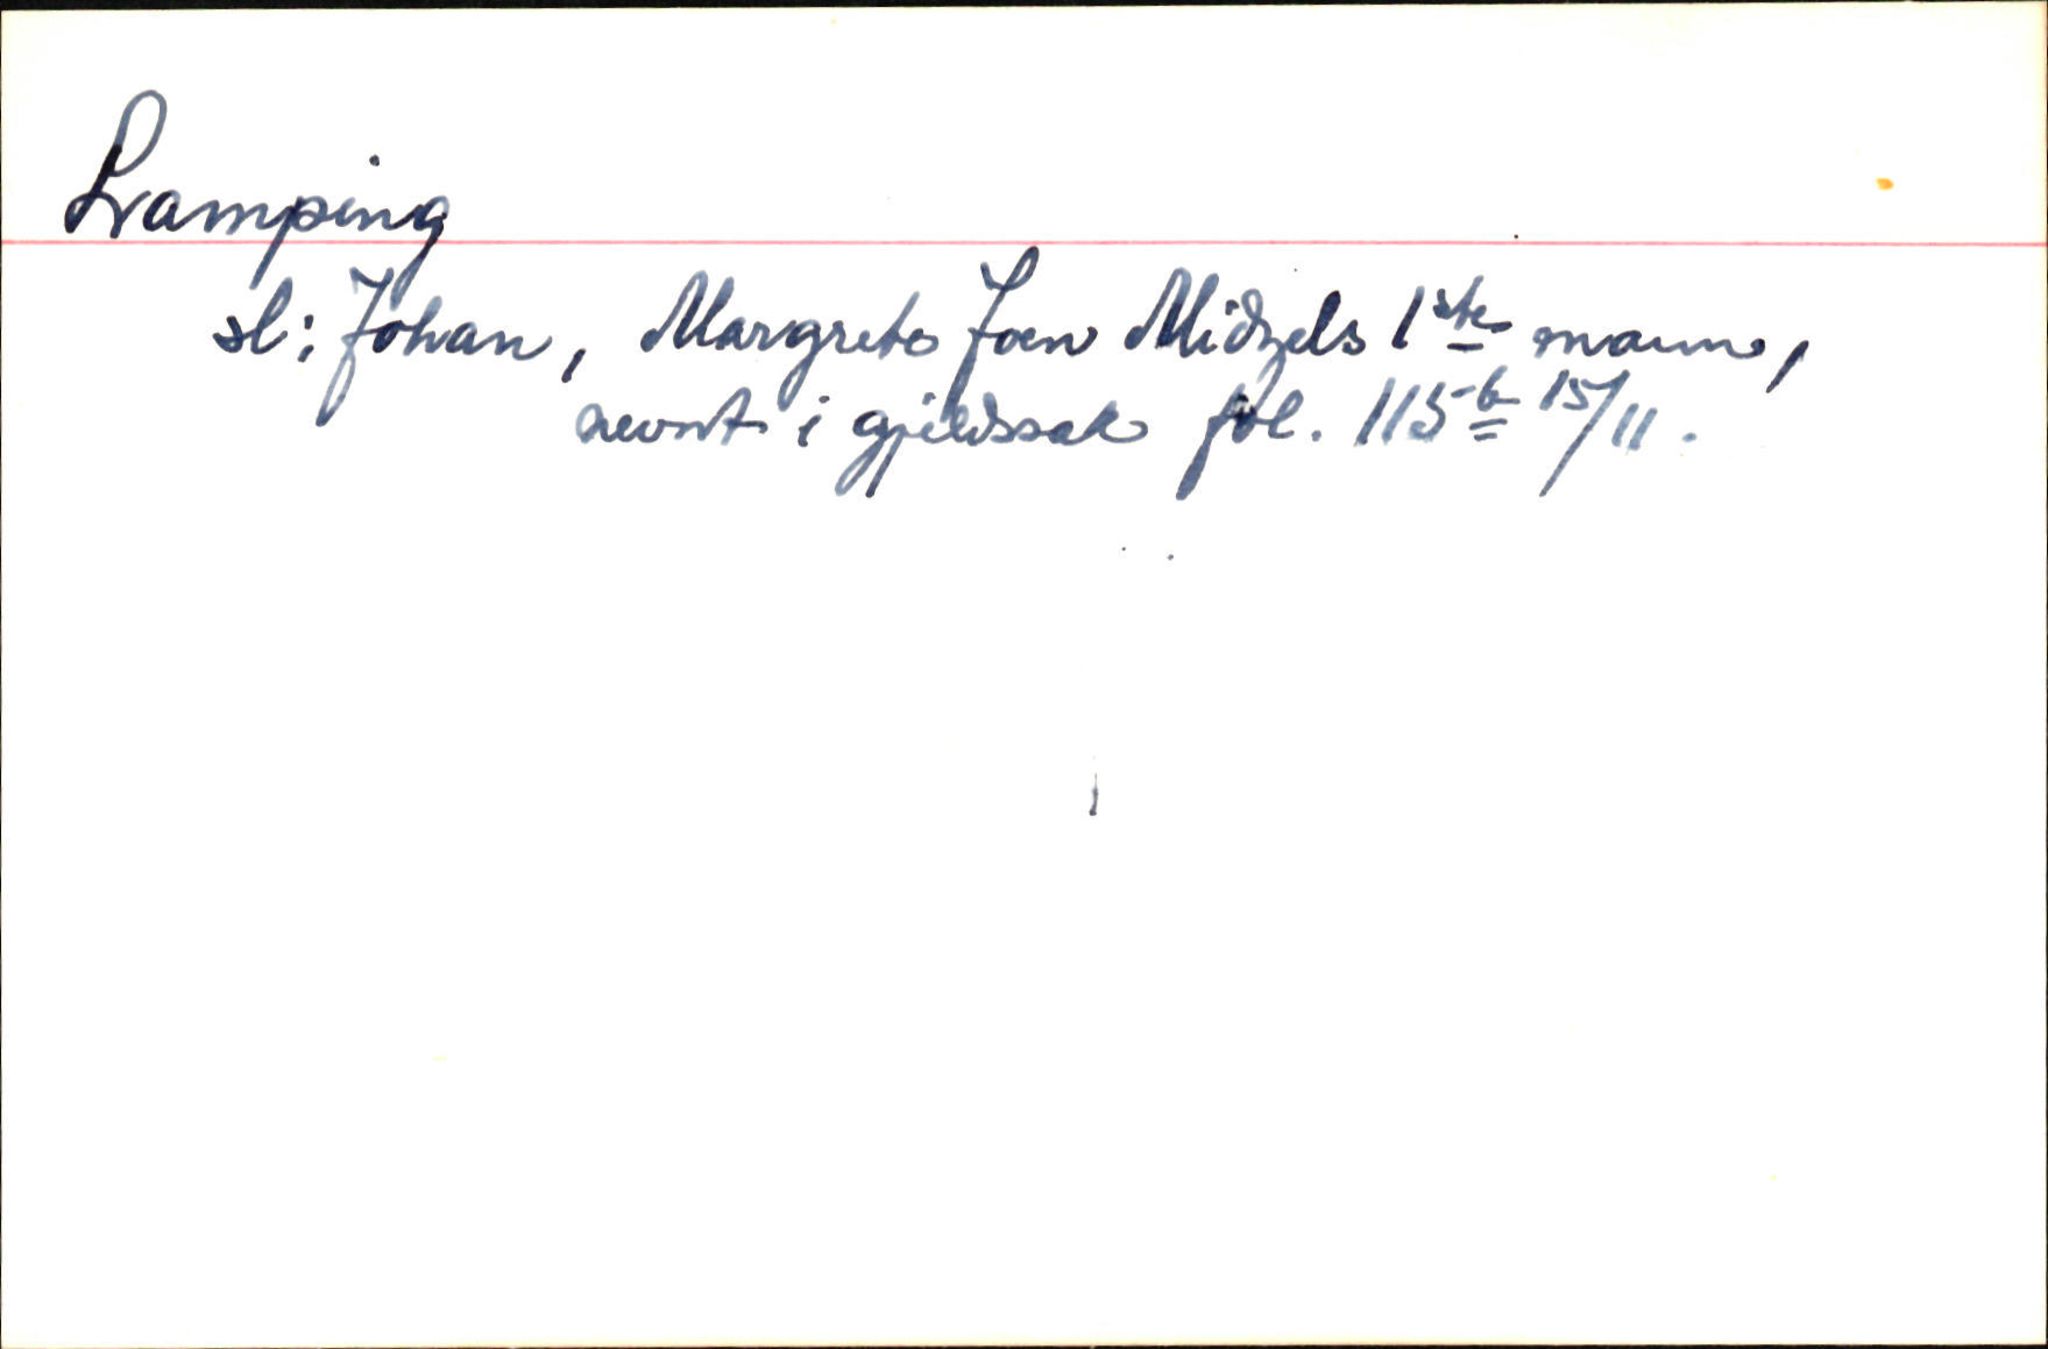 Lamping
sl: Johan, Margrete Joen Midzels 1ste mann,
nevnt i gjeldssak fol. 115b 15/11.